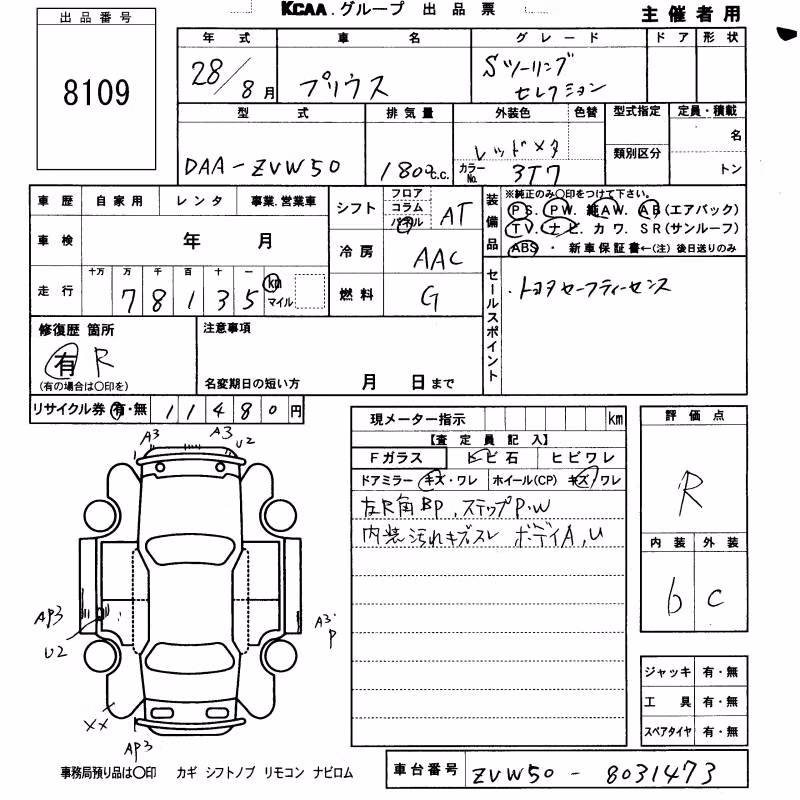 KCAA.グループ 出品票
主催者用
出品番号
8109
年式 車名 グレード ドア 形状
28/8月 プリウス Sツーリング
セレクション
型式 排気量 外装色 色替 型式指定 定員・積載
DAA-ZVW50 1800c.c. レッドメタ 名
カラーNo. 3T7 類別区分 トン
車歴 自家用 レンタ 事業.営業車
シフト フロア コラム パネル AT
車検 年 月
冷房 AAC
走行 十万 万 千 百 十 一
78135 km マイル
燃料 G
装備品 ※純正のみ○印をつけて下さい。
PS. PW. 純AW. AB(エアバック)
TV. ナビ. カワ. SR(サンルーフ)
ABS ・ 新車保証書←(注)後日送りのみ
セールスポイント
・トヨタセーフティーセンス
修復歴 箇所
有 R
(有の場合は○印を)
注意事項
名変期日の短い方 月 日まで
リサイクル券 有・無 11480円
現メーター指示 km
【査定員記入】
Fガラス ヒビ石 ヒビワレ
ドアミラー キズ・ワレ ホイール(CP) キズ/ワレ
左R角BP、ステップP・W
内装汚れキズスレ ボディA,U
評価点
R
内装 外装
b C
ジャッキ 有・無
工具 有・無
スペアタイヤ 有・無
A3 A3 U2
AP3
U2
A3・P
XX
AP3
事務局預り品は○印 カギ シフトノブ リモコン ナビロム
車台番号 ZVW50-8031473